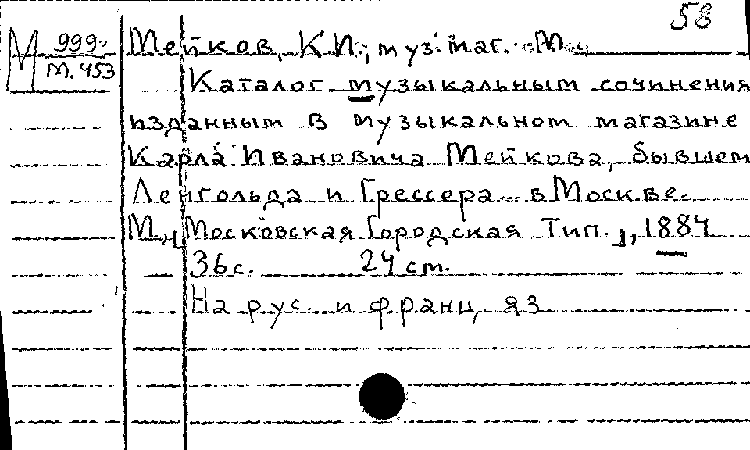 58
М 999
М. 453
Мейков, К.И., муз. маг. М.
Каталог музыкальным сочинения
изданным в музыкальном магазине
Карла Ивановича Мейкова, бывшем
Ленгольда и Грессера в Москве.
М., [Московская Городская Тип.], 1884
36с. 24 см.
На рус. и франц. яз